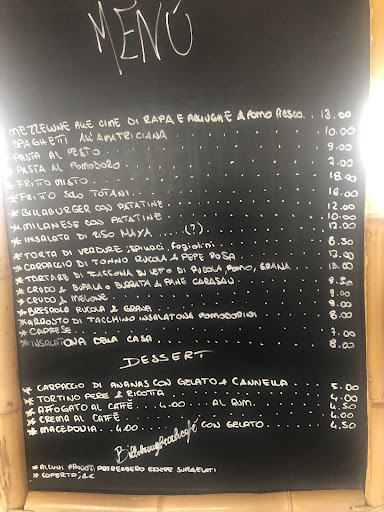 MENÙ
* MEZZELUNE ALLE CIME DI RAPA E ACCIUGHE & POMO FRESCO.. 13.00
* SPAGHETTI ALL'AMATRICIANA 10.00
* PASTA AL PESTO 9.00
* PASTA AL POMODORO 7.00
* FRITTO MISTO 18.00
* FRITTO SOLO TOTANI 16.00
* BILLABURGER CON PATATINE 12.00
* MILANESE CON PATATINE 10.00
* INSALATA DI RISO MAYA (?) 12.00
* TORTA DI VERDURE; SPINACI, FAGIOLINI 8.50
* CARPACCIO DI TONNO RUCOLA & PEPE ROSA 13.00
* TARTARE DI FASSONA SU LETTO DI RUCOLA, POMO, GRANA 13.00
* CRUDO & BUFALA O BURRATA & PANE CARASAU 9.50
* CRUDO & MELONE 8.00
* BRESAOLA RUCOLA & GRANA 8.00
* ARROSTO DI TACCHINO INSALATONA POMODORINI 8.00
* CAPRESE 7.00
* INSALATONA DELLA CASA 8.00
DESSERT
* CARPACCIO DI ANANAS CON GELATO & CANNELLA 5.00
* TORTINO PERE & RICOTTA 4.00
* AFFOGATO AL CAFFÈ....4.00 AL RUM 4.50
* CREMA AL CAFFÈ 4.00
* MACEDONIA..4.00 CON GELATO 4.50
* ALCUNI PRODOTTI POTREBBERO ESSERE SURGELATI
* COPERTO;